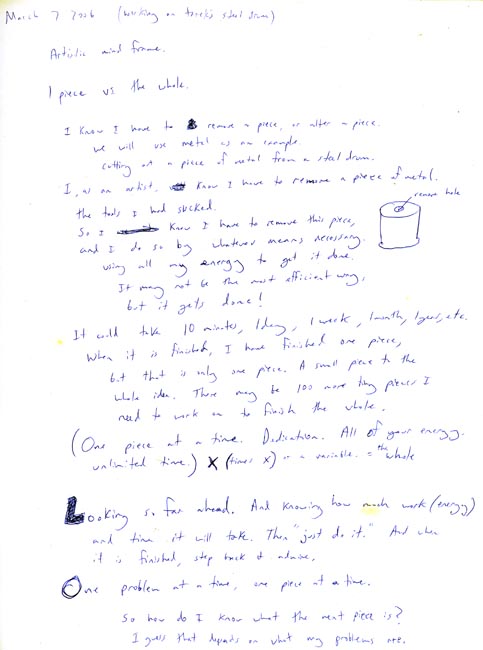 March 7 2006 (working on steel drum)
Artistic mind frame.
1 piece vs the whole.
I know I have to remove a piece, or alter a piece.
we will use metal as an example.
cutting out a piece of metal from a steel drum.
I, as an artist, know I have to remove a piece of metal.
remove hole
the tools I had sucked.
So I know I have to remove this piece,
and I do so by whatever means necessary.
using all my energy to get it done.
It may not be the most efficient way,
but it gets done!
It could take 10 minutes, 1 day, 1 week, 1 month, 1 year, etc.
When it is finished, I have finished one piece,
but that is only one piece. A small piece to the
whole idea. There may be 100 more tiny pieces I
need to work on to finish the whole.
(One piece at a time. Dedication. All of your energy.
unlimited time.) X (times X) is a variable. = the whole
Looking so far ahead. And knowing how much work (energy)
and time it will take. Then "just do it." And when
it is finished, step back & admire.
One problem at a time, one piece at a time.
So how do I know what the next piece is?
I guess that depends on what my problems are.